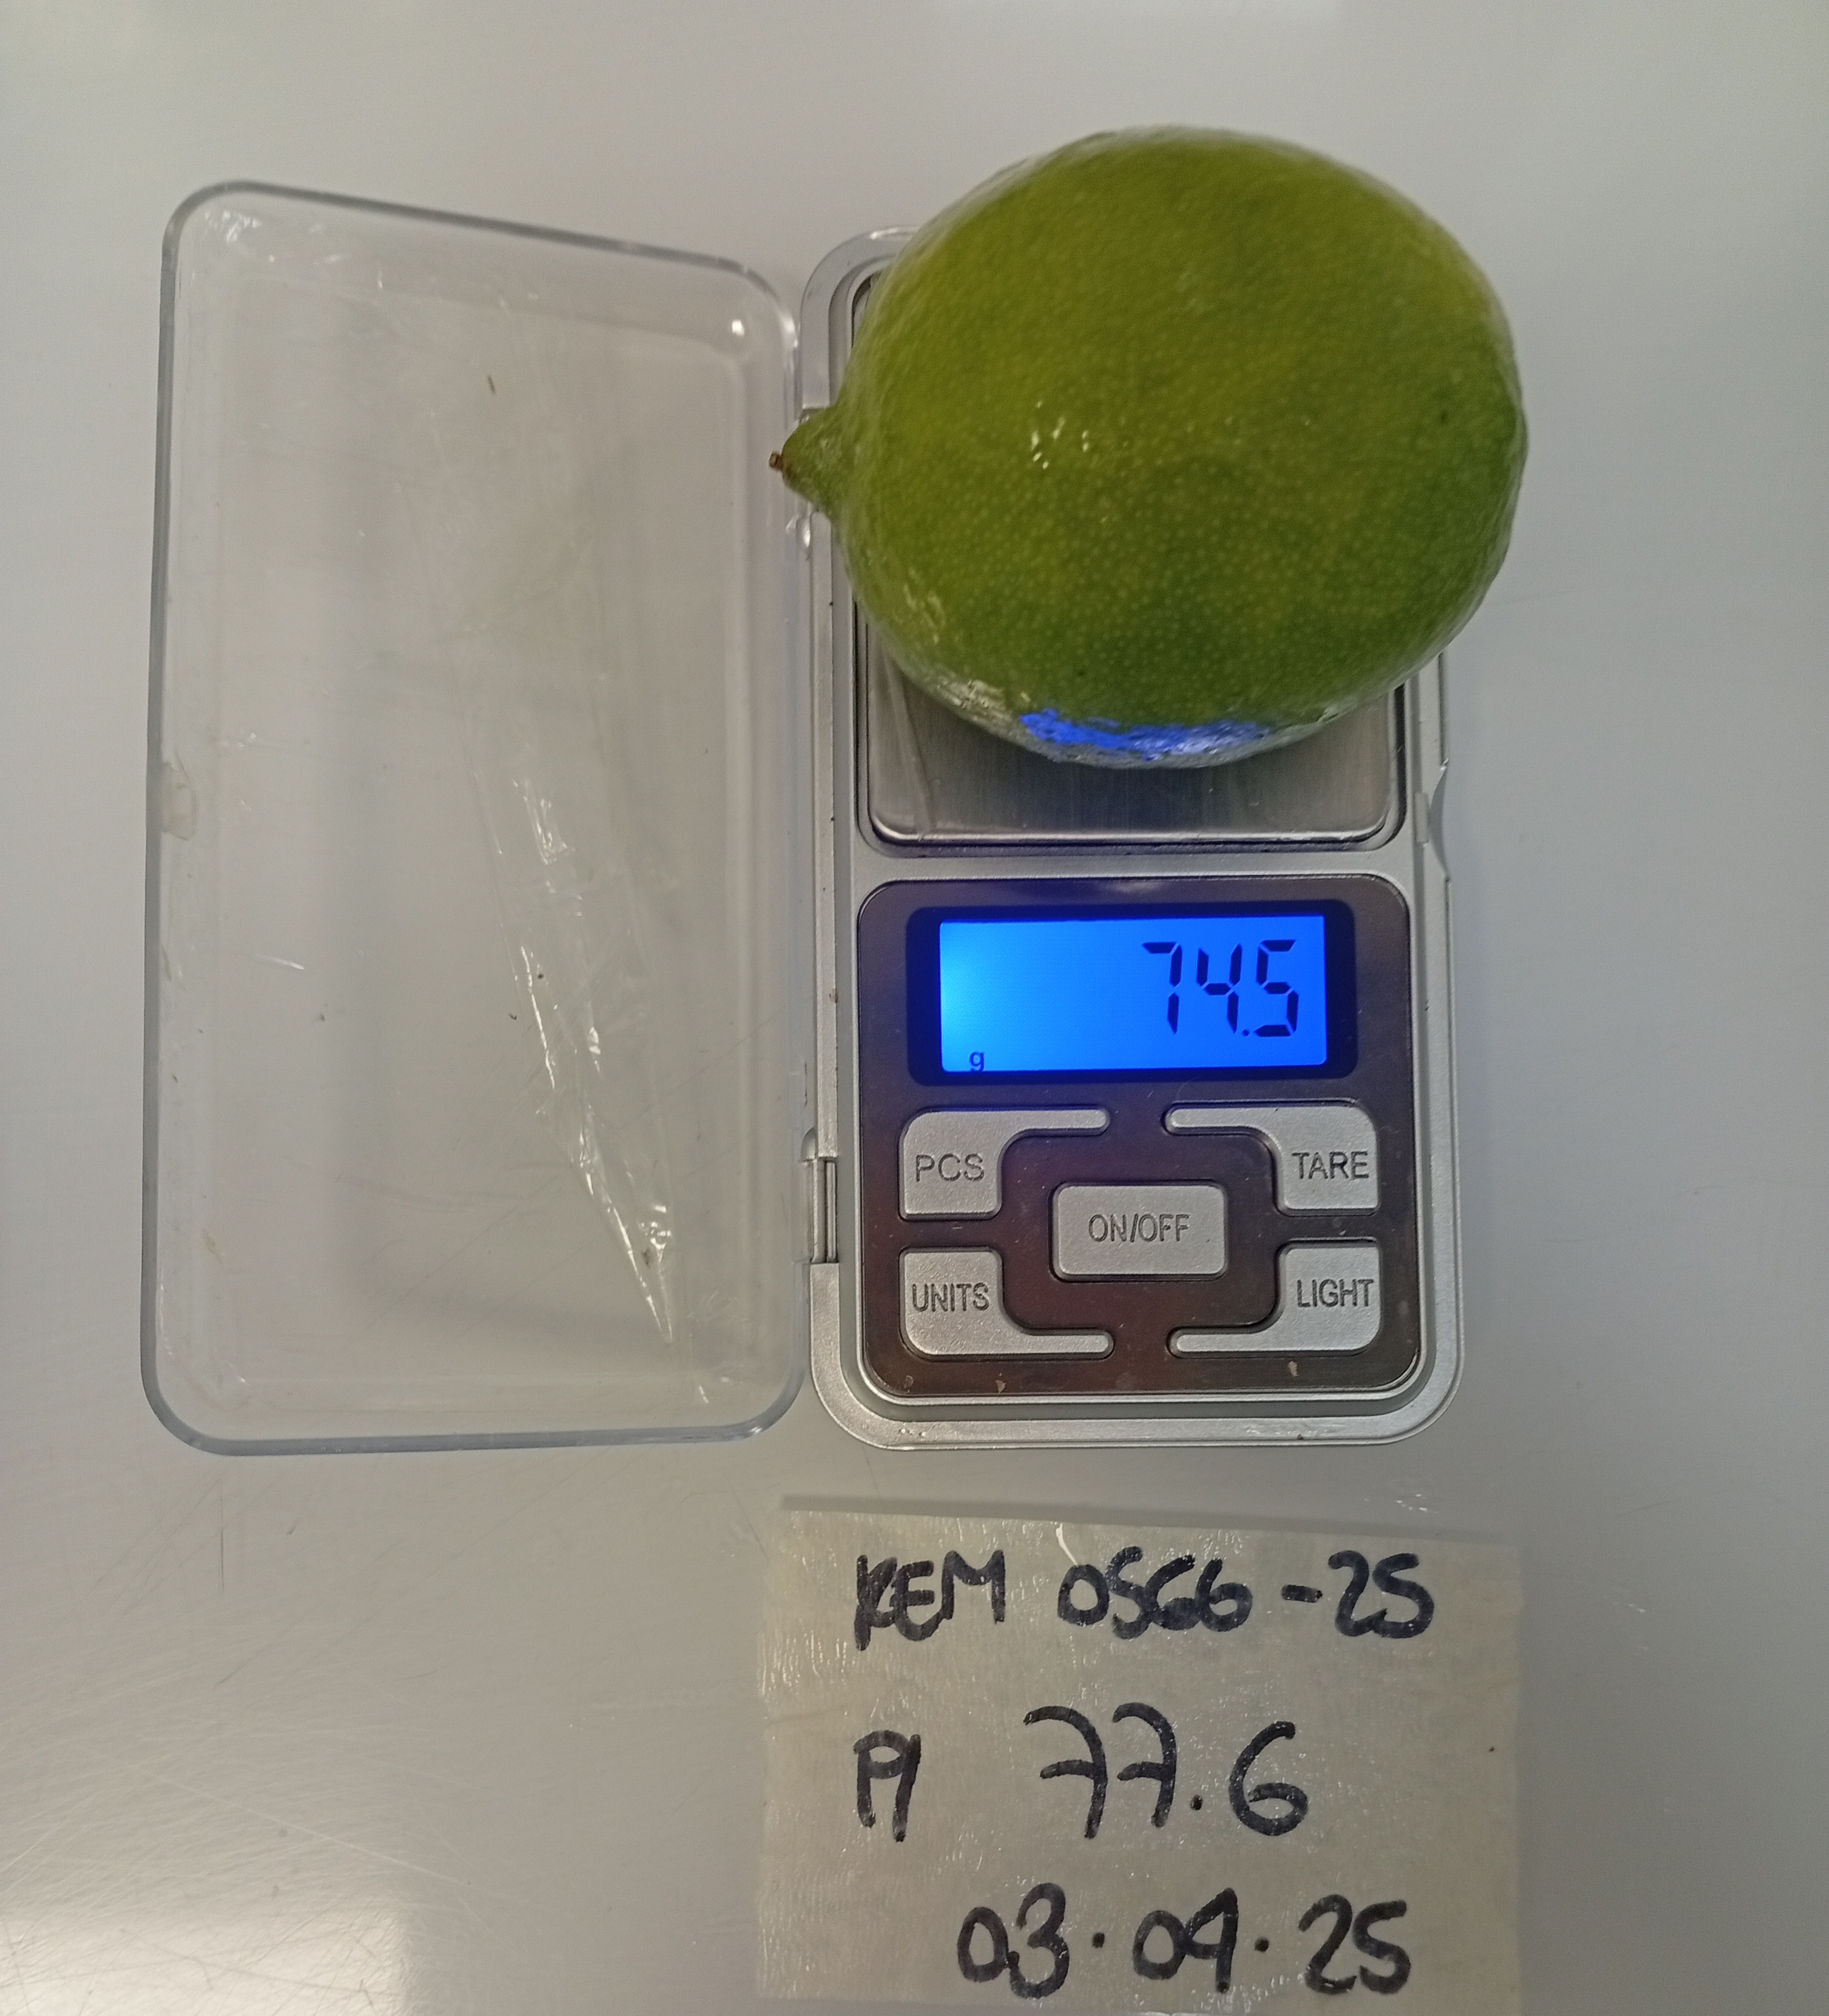 74.5
g
PCS
TARE
ON/OFF
UNITS
LIGHT
KEM 0566-25
P1 77.6
03.04.25